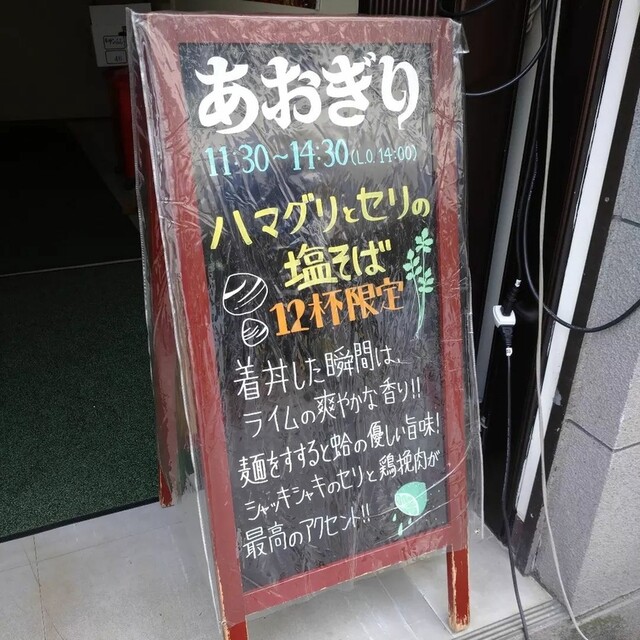 あおぎり
11:30〜14:30(L.O.14:00)
ハマグリとセリの
塩そば
12杯限定
着丼した瞬間は、
ライムの爽やかな香り!!
麺をすすると蛤の優しい旨味!
シャッキシャキのセリと鶏挽肉が
最高のアクセント!!